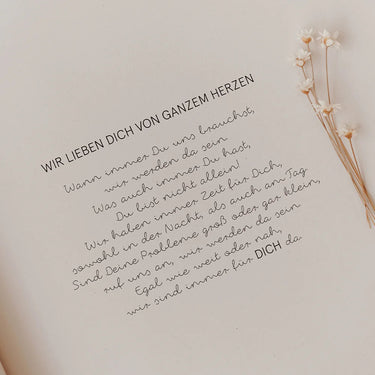 WIR LIEBEN DICH VON GANZEM HERZEN
Wann immer Du uns brauchst,
wir werden da sein
Was auch immer Du hast,
Du bist nicht allein!
Wir haben immer Zeit für Dich,
sowohl in der Nacht, als auch am Tag
Sind Deine Probleme groß oder gar klein,
ruf uns an, wir werden da sein
Egal wie weit oder nah,
wir sind immer für DICH da